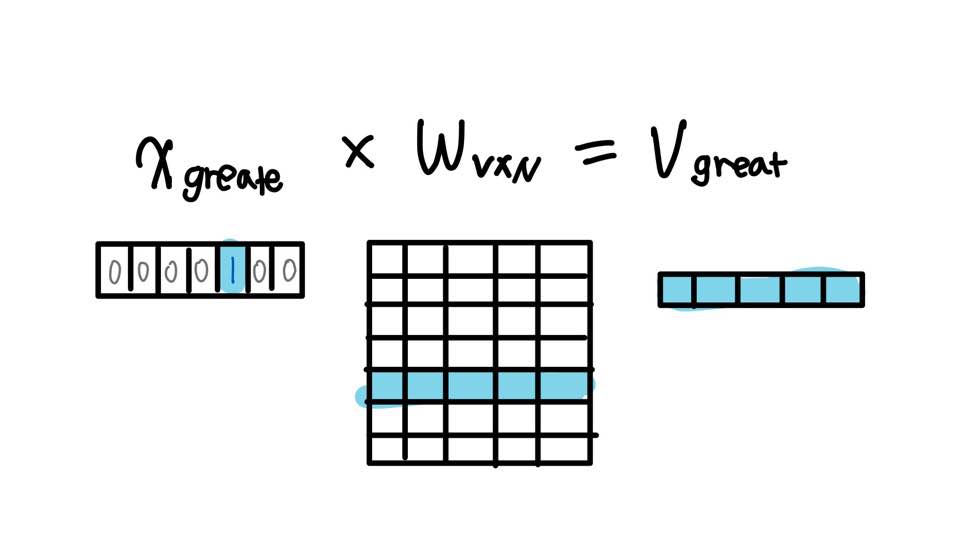 x greate × W VxN = V great
0 0 0 0 1 0 0